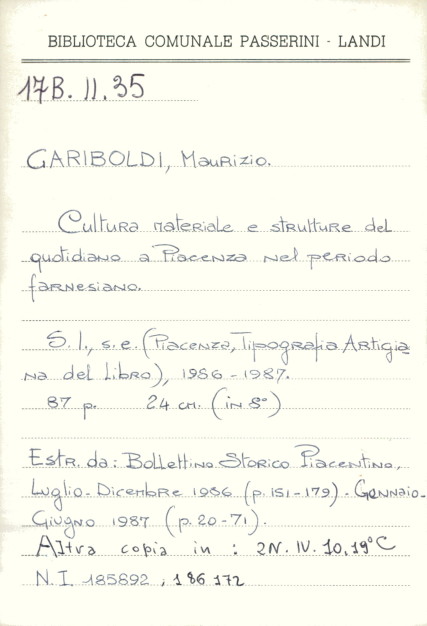 BIBLIOTECA COMUNALE PASSERINI - LANDI
17B. II. 35
GARIBOLDI, Maurizio.
Cultura materiale e strutture del
quotidiano a Piacenza nel periodo
farnesiano.
S. l., s. e. (Piacenza, Tipografia Artigia
na del Libro), 1986 - 1987.
87 p. 24 cm. (in 8°)
Estr. da: Bollettino Storico Piacentino,
Luglio - Dicembre 1986 (p. 151 - 179) - Gennaio -
Giugno 1987 (p. 20 - 71).
Altra copia in : 2N. IV. 10, 19° C
N. I. 185892 , 186 172